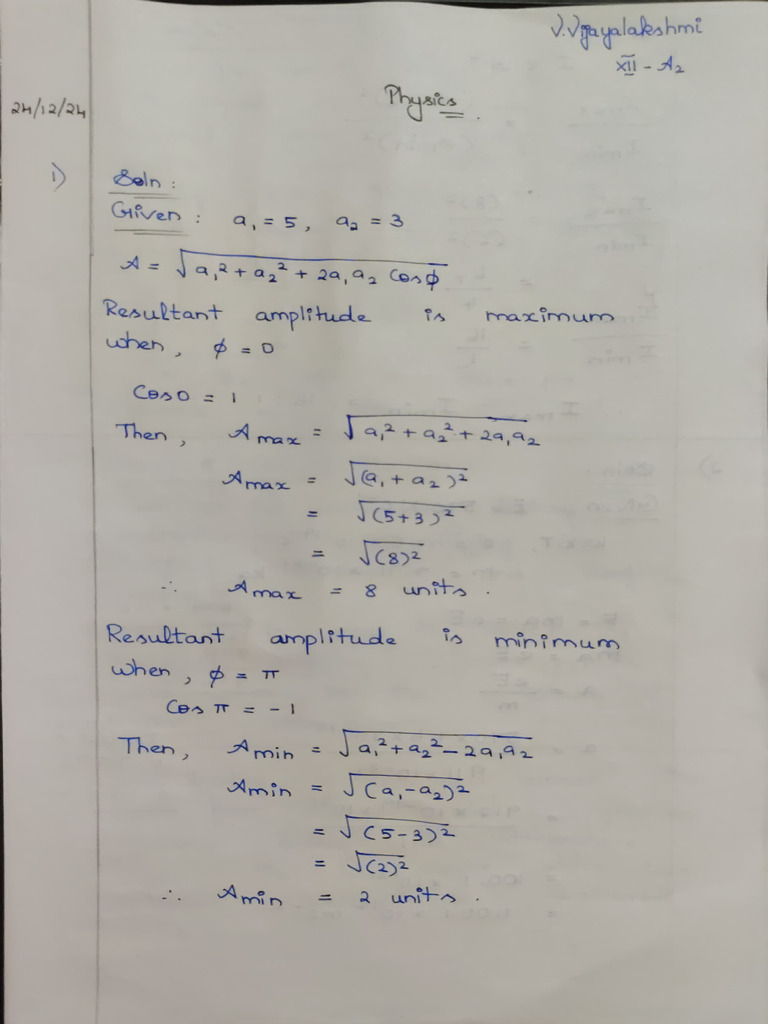 V.Vijayalakshmi
XII - A₂
24/12/24
Physics.
1) Soln:
Given: a₁ = 5, a₂ = 3
A = √a₁² + a₂² + 2a₁a₂ Cosϕ
Resultant amplitude is maximum
when, ϕ = 0
Cos0 = 1
Then, Amax = √a₁² + a₂² + 2a₁a₂
Amax = √(a₁ + a₂)²
= √(5+3)²
= √(8)²
∴ Amax = 8 units.
Resultant amplitude is minimum
when, ϕ = π
Cos π = -1
Then, Amin = √a₁² + a₂² - 2a₁a₂
Amin = √(a₁-a₂)²
= √(5-3)²
= √(2)²
∴ Amin = 2 units.